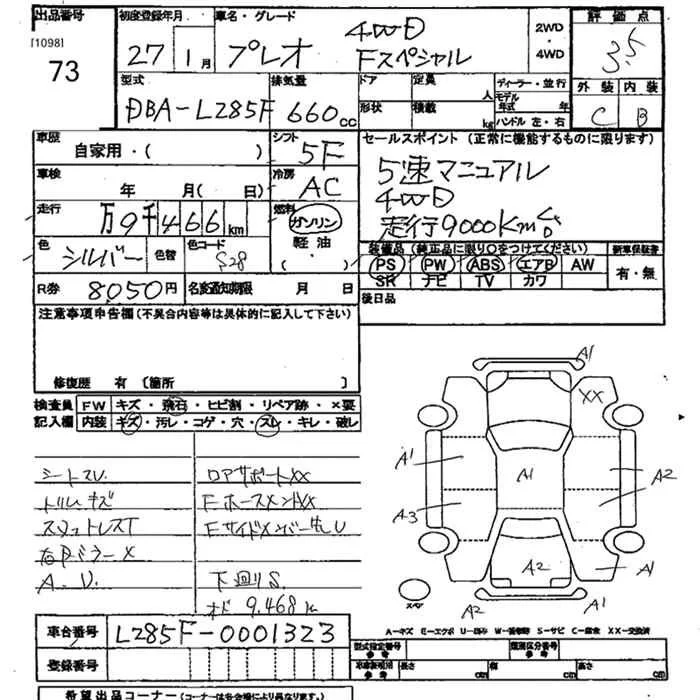 出品番号 初度登録年月 車名・グレード 2WD・4WD 評価点
[1098] 73
27 1月 プレオ 4WD Fスペシャル 3.5
型式 排気量 ドア 定員 人 ディーラー・並行 外装 内装
DBA-L285F 660cc 形状 積載 kg モデル年式 年 ハンドル 左・右 C B
車歴 シフト セールスポイント(正常に機能するものに限ります)
自家用・( ) 5F
5速マニュアル
車検 年 月(日) 冷房 AC
4WD
走行 万9千466km 燃料 ガソリン 軽油 ・ ( )
走行9000Km
色 シルバー 色替 色コード S28
装備品(純正品に限り○をつけてください) 新車保証書
PS PW ABS エアB AW 有・無
SR ナビ TV カワ
R券 8050円 名変通知期限 月 日
後日品
注意事項申告欄(不具合内容等は具体的に記入して下さい)
修復歴 有 〔箇所 〕
検査員 FW キズ・飛石・ヒビ割・リペア跡・×要
記入欄 内装 キズ・汚レ・コゲ・穴・スレ・キレ・破レ
ロアサポートXX
トリムキズ
右ドアミラーX
A.U.
下回りS.
オド 9.468k
A1
XX
A1
A1
A2
A3
A2
A1
A2
A1
スペア
A-キズ E-エクボ U-凹み W-補修跡 S-サビ C-腐食 XX-交換済
車台番号 L285F-0001323
型式指定番号 参考 類別区分番号 参考
登録番号
車庫証明用 参考 長さ cm 幅 cm 高さ cm
希望出品コーナー(コーナーは各会場により異なります。)